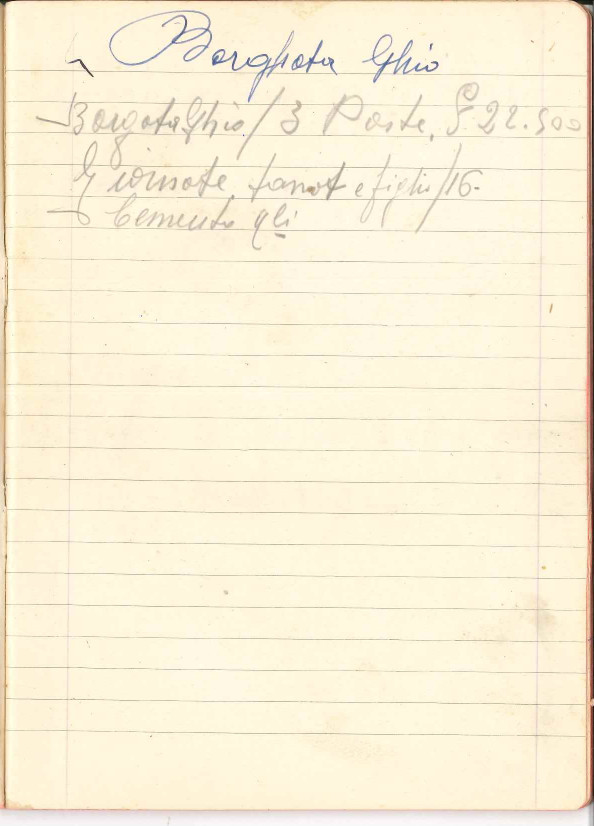 Borghata Ghio
Borgata Ghio / 3 Porte, £ 22.500
Giornate tanot e figlio / 16-
Cemento qli